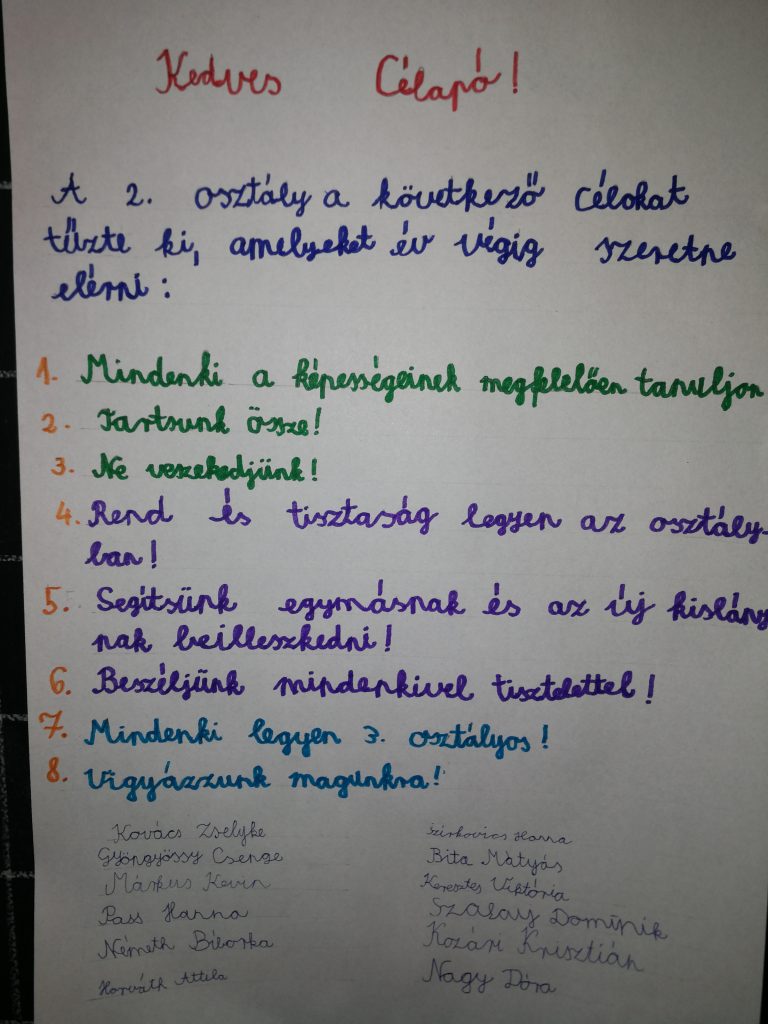 Kedves Célapó!
A 2. osztály a következő célokat
tűzte ki, amelyeket év végig szeretne
elérni:
1. Mindenki a képességeinek megfelelően tanuljon
2. Tartsunk össze!
3. Ne veszekedjünk!
4. Rend és tisztaság legyen az osztály-
ban!
5. Segítsünk egymásnak és az új kislány
nak beilleszkedni!
6. Beszéljünk mindenkivel tisztelettel!
7. Mindenki legyen 3. osztályos!
8. Vigyázzunk magunkra!
Kovács Zselyke
Gyöngyössy Csenge
Márkus Kevin
Pass Hanna
Németh Biborka
Horváth Attila
Hanna
Bita Mátyás
Keresztes Viktória
Szalay Dominik
Kozári Krisztián
Nagy Dóra